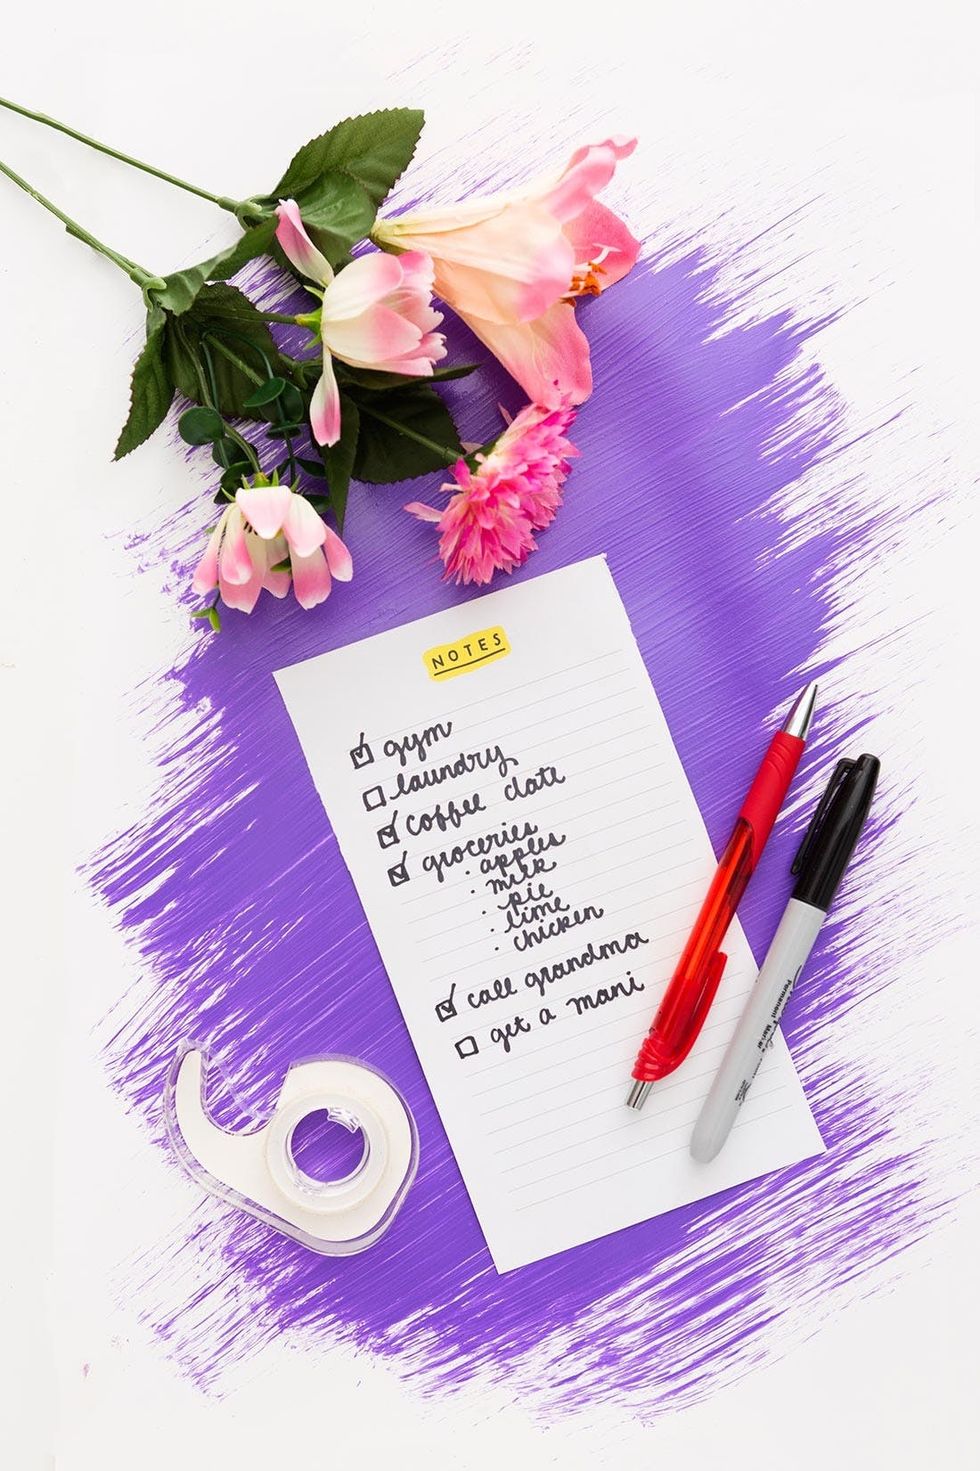 NOTES
☑ gym
☐ laundry
☑ coffee date
☑ groceries
· apples
· milk
· pie
· lime
· chicken
☑ call grandma
☐ get a mani
Permanent Marker